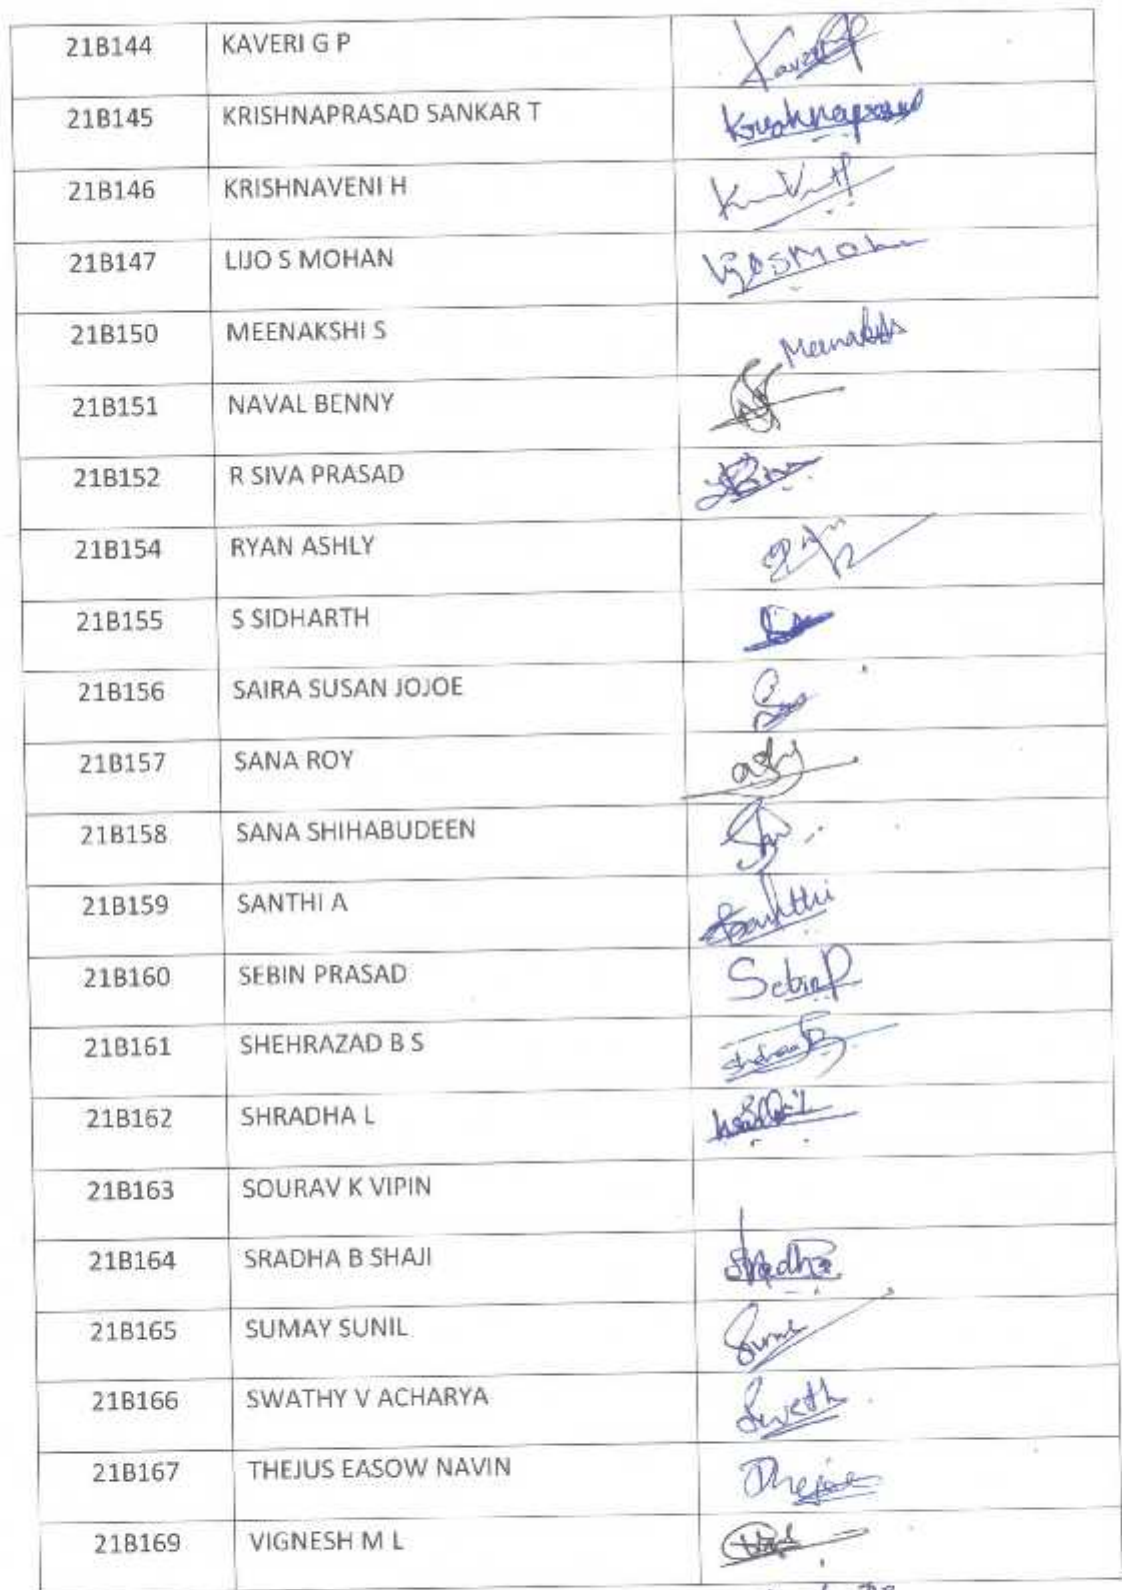 21B144 KAVERI G P Kaveri
21B145 KRISHNAPRASAD SANKAR T Krishnaprasad
21B146 KRISHNAVENI H
21B147 LIJO S MOHAN Lijo S Mohan
21B150 MEENAKSHI S Meenakshi
21B151 NAVAL BENNY
21B152 R SIVA PRASAD
21B154 RYAN ASHLY
21B155 S SIDHARTH
21B156 SAIRA SUSAN JOJOE
21B157 SANA ROY
21B158 SANA SHIHABUDEEN
21B159 SANTHI A Santhi
21B160 SEBIN PRASAD Sebin P
21B161 SHEHRAZAD B S
21B162 SHRADHA L
21B163 SOURAV K VIPIN
21B164 SRADHA B SHAJI Sradha
21B165 SUMAY SUNIL
21B166 SWATHY V ACHARYA Swath
21B167 THEJUS EASOW NAVIN
21B169 VIGNESH M L